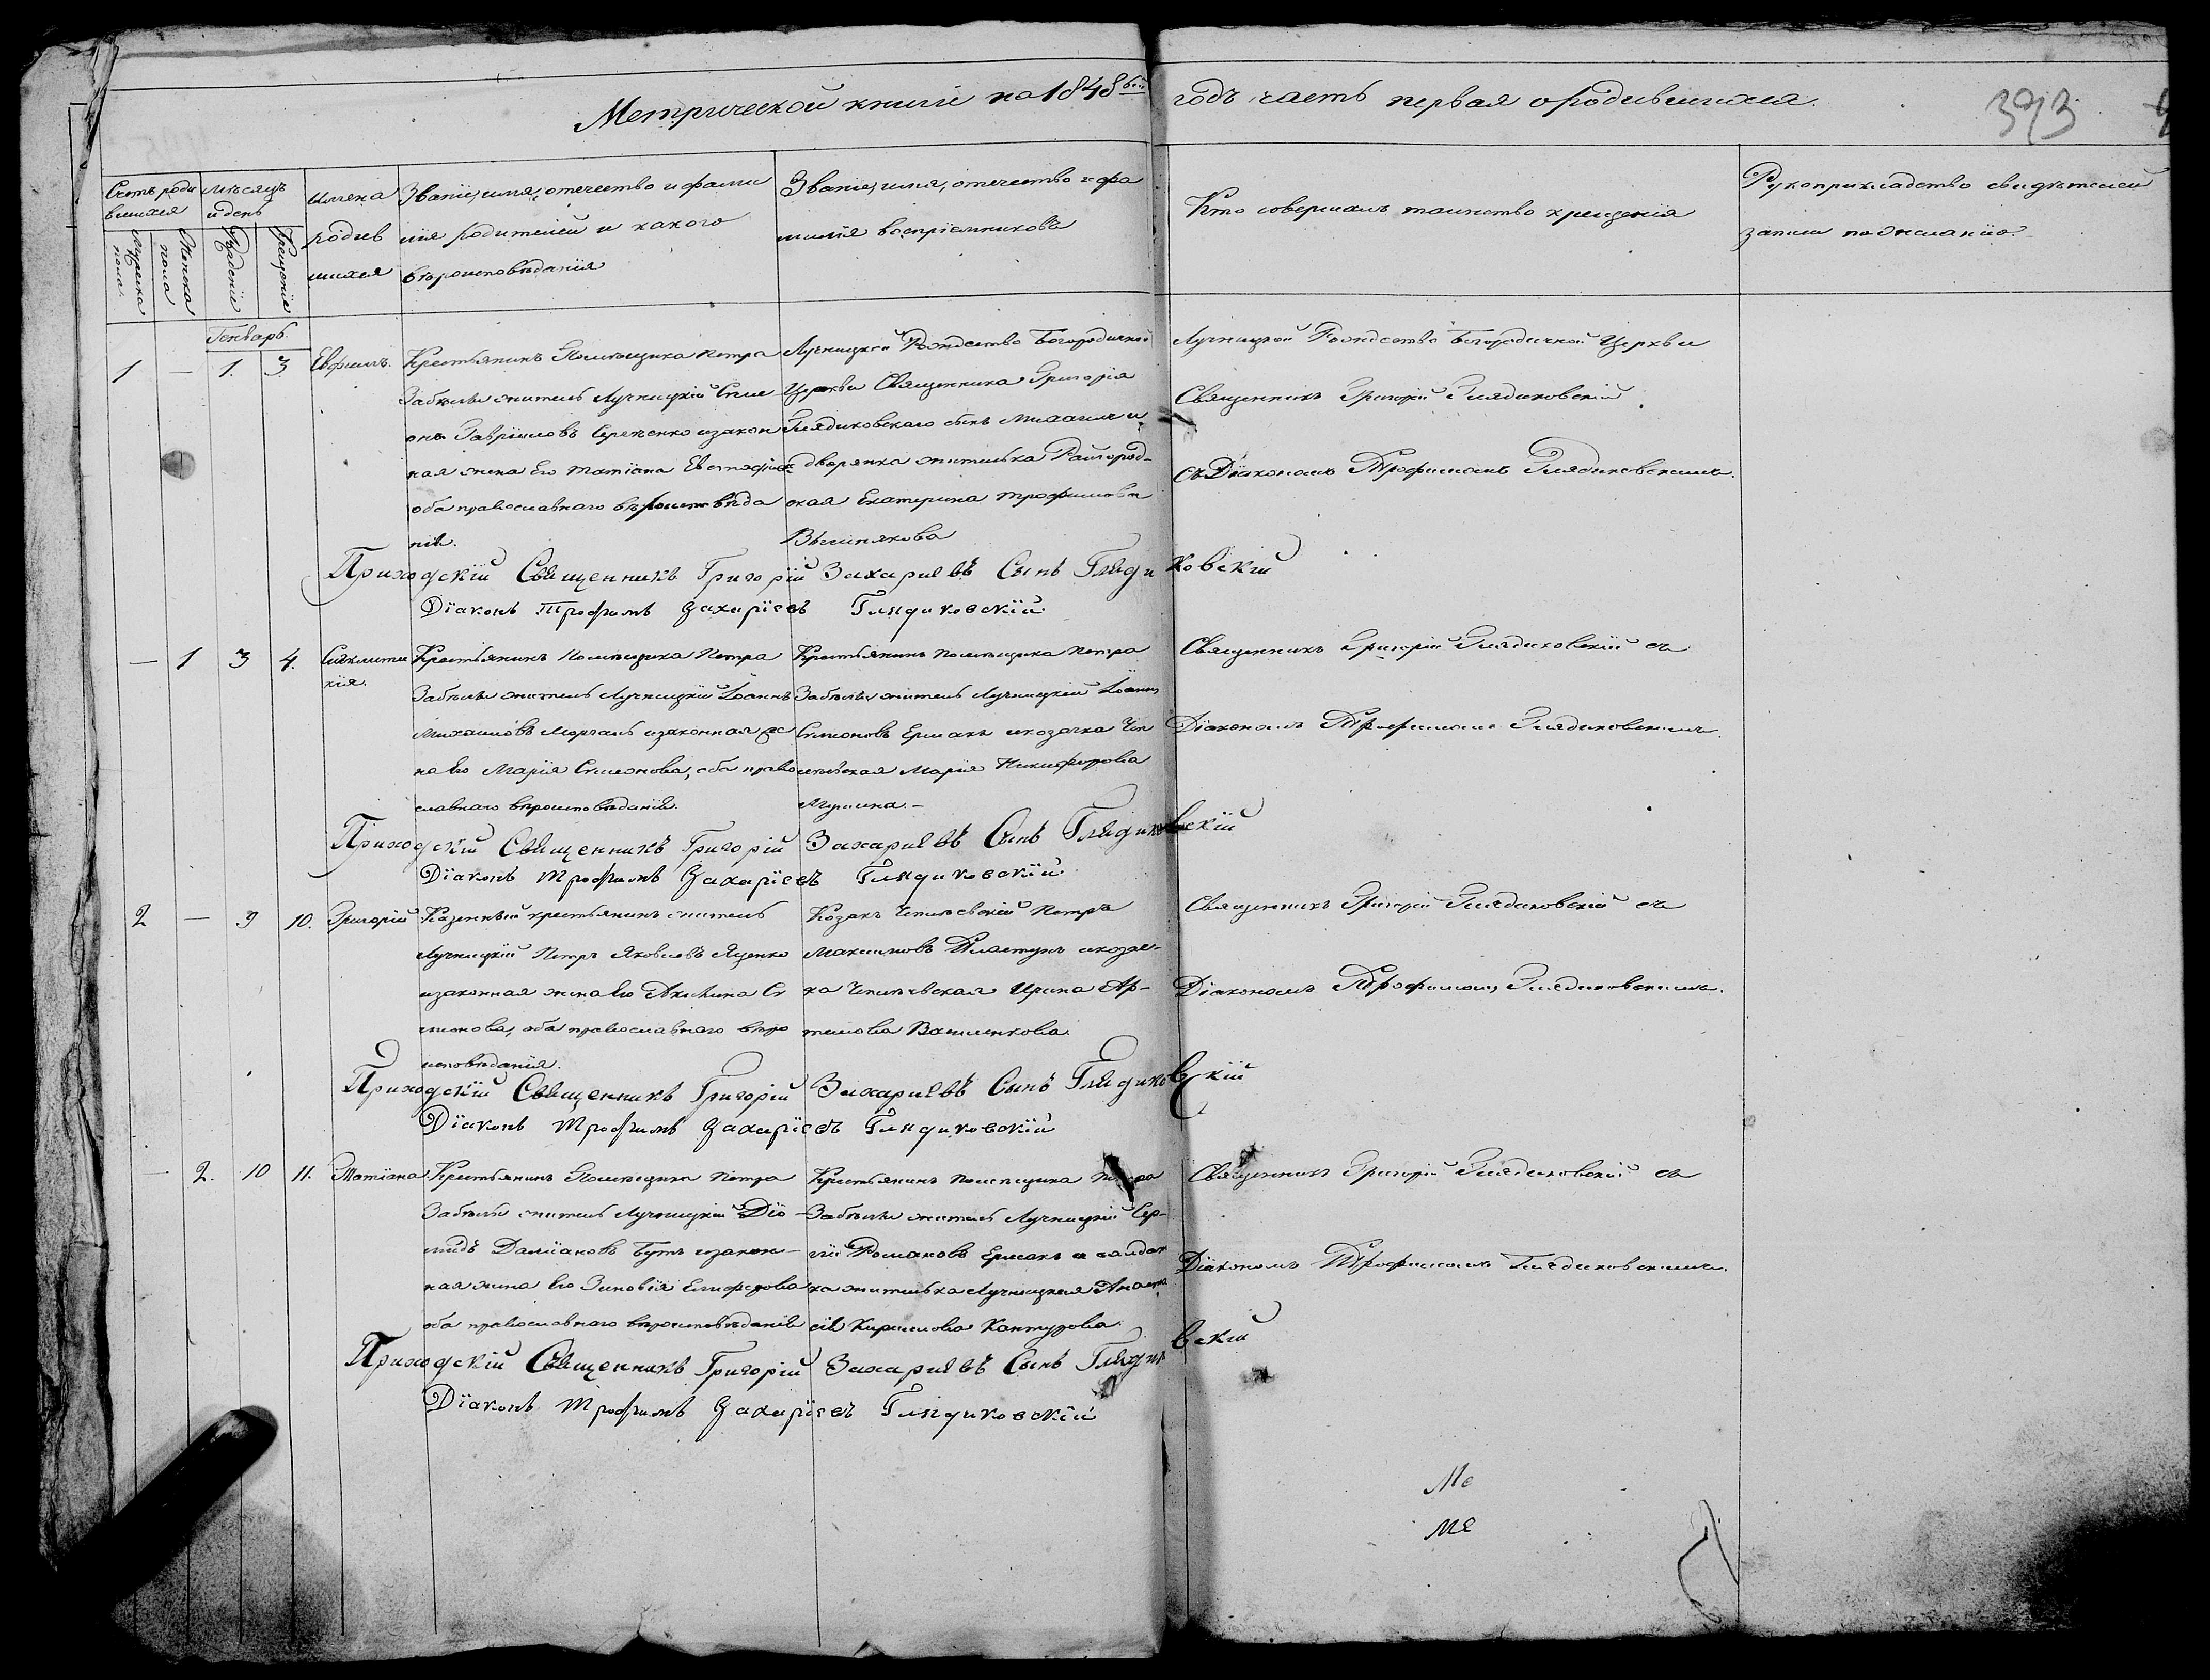 Метрической книги на 1848й годъ, часть первая о родившихся.
393
Счетъ родившихся
Мужеска пола.
Женска пола
Мѣсяцъ и день
Рожденіе
Крещеніе
имена
родив
шихся
Званіе, имя, отечество и фами
лія родителей и какого
вѣроисповѣданія
Званіе, имя, отечество и фа
милія воспріемниковъ
Кто совершалъ таинство крещенія
Рукоприкладство свидѣтелей
записи по желанію.
Генварь.
1 — 1. 3.
Евфимъ.
Крестьянинъ Помѣщика Петра
Забѣлы житель Лучницкій Симе
онъ Гавріиловъ изакон
ная жена Его Татіана
оба православнаго вѣроисповѣда
нія.
Лучницкой Рождество Богородичной
Церкви Священника Григорія
Глядиковскаго сынъ Михаилъ и
дворянка жителька Райгород-
ская Екатерина Трофимова
Вишнякова
Лучницкой Рождество Богородичной Церкви
Священникъ Григорій Глядиковскій
съ Діакономъ Трофимомъ Глядиковскимъ.
Приходскій Священникъ Григорій Захаріевъ Сынъ Глядиковскій
Діаконъ Трофимъ Захаріевъ Глядиковскій
— 1 3 4.
Синклити
кія.
Крестьянинъ Помѣщика Петра
Забѣлы житель Лучницкій Іоаннъ
Михаиловъ изаконная же
на Его Марія Симеонова, оба право
славнаго вѣроисповѣданія.
Крестьянинъ помѣщика Петра
Забѣлы житель Лучницкій Іоаннъ
Симоновъ Ермакъ икозачка Чеп
Марія Никифорова
Священникъ Григорій Глядиковскій съ
Діакономъ Трофимомъ Глядиковскимъ.
Приходскій Священникъ Григорій Захаріевъ Сынъ Глядиковскій
Діаконъ Трофимъ Захаріевъ Глядиковскій
2 — 9 10.
Григорій
Казенный крестьянинъ житель
Лучницкій Петръ Яковлевъ Яценко
изаконная жена Его Акилина Си
монова, оба православнаго вѣро
исповѣданія.
Козакъ Петръ
Максимовъ Пластунъ икозач-
ка Ирина Ар-
темова Василенкова.
Священникъ Григорій Глядиковскій съ
Діакономъ Трофимомъ Глядиковскимъ.
Приходскій Священникъ Григорій Захаріевъ Сынъ Глядиковскій
Діаконъ Трофимъ Захаріевъ Глядиковскій
— 2. 10 11.
Татіана.
Крестьянинъ Помѣщика Петра
Забѣлы житель Лучницкій Діо-
мидъ Даміановъ Бутъ изакон-
ная жена Его Зиновія
оба православнаго вѣроисповѣданія
Крестьянинъ помѣщика Петра
Забѣлы житель Лучницкій Сер-
гій Романовъ Ермакъ и салдат
ка жителька Лучницкая Анаста
сія Кирилова Кантурова.
Священникъ Григорій Глядиковскій съ
Діакономъ Трофимомъ Глядиковскимъ.
Приходскій Священникъ Григорій Захаріевъ Сынъ Глядиковскій
Діаконъ Трофимъ Захаріевъ Глядиковскій
Ме
Ме